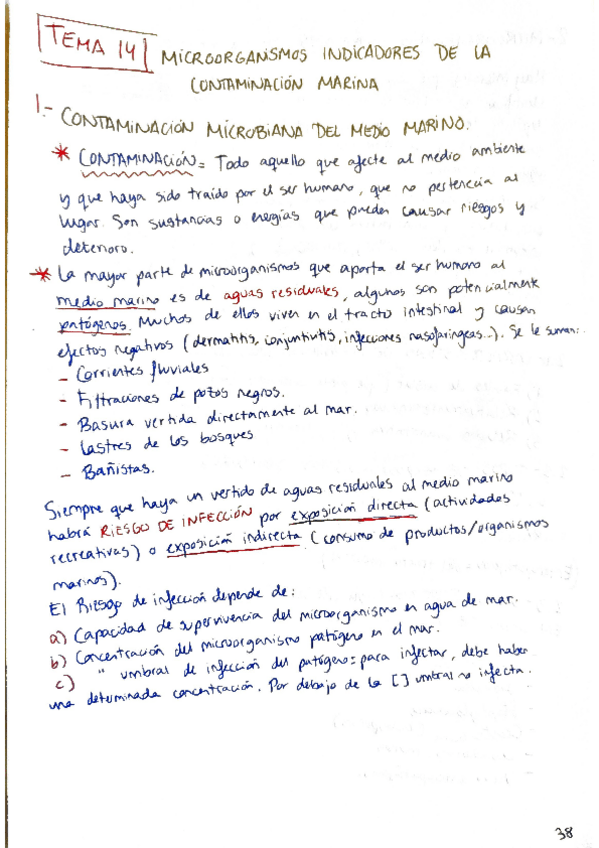 TEMA 14 MICROORGANISMOS INDICADORES DE LA
CONTAMINACIÓN MARINA
1.- CONTAMINACIÓN MICROBIANA DEL MEDIO MARINO.
* CONTAMINACIÓN = Todo aquello que afecte al medio ambiente
y que haya sido traído por el ser humano, que no pertenecía al
lugar. Son sustancias o energías que pueden causar riesgos y
deterioro.
* La mayor parte de microorganismos que aporta el ser humano al
medio marino es de aguas residuales, algunos son potencialmente
patógenos. Muchos de ellos viven en el tracto intestinal y causan
efectos negativos (dermatitis, conjuntivitis, infecciones nasofaríngeas..). Se le suman:
- Corrientes fluviales
- Filtraciones de pozos negros.
- Basura vertida directamente al mar.
- Lastres de los bosques
- Bañistas.
Siempre que haya un vertido de aguas residuales al medio marino
habrá RIESGO DE INFECCIÓN por exposición directa (actividades
recreativas) o exposición indirecta (consumo de productos/organismos
marinos).
El Riesgo de infección depende de:
a) Capacidad de supervivencia del microorganismo en agua de mar.
b) Concentración del microorganismo patógeno en el mar.
c) " umbral de infección del patógeno: para infectar, debe haber
una determinada concentración. Por debajo de la [] umbral no infecta.
38